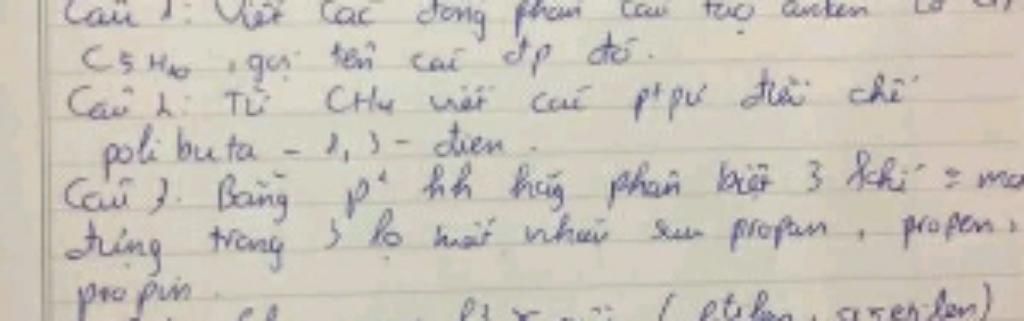 Câu 1: Viết các đồng phân cấu tạo anken có
C5H10, gọi tên các đp đó.
Câu 2: Từ CH4 viết các ptpư điều chế
poli buta - 1, 3 - đien.
Câu 3. Bằng pt hh hãy phân biệt 3 khí = mà
đựng trong 3 lọ mất nhãn sau propan, propen,
propin.